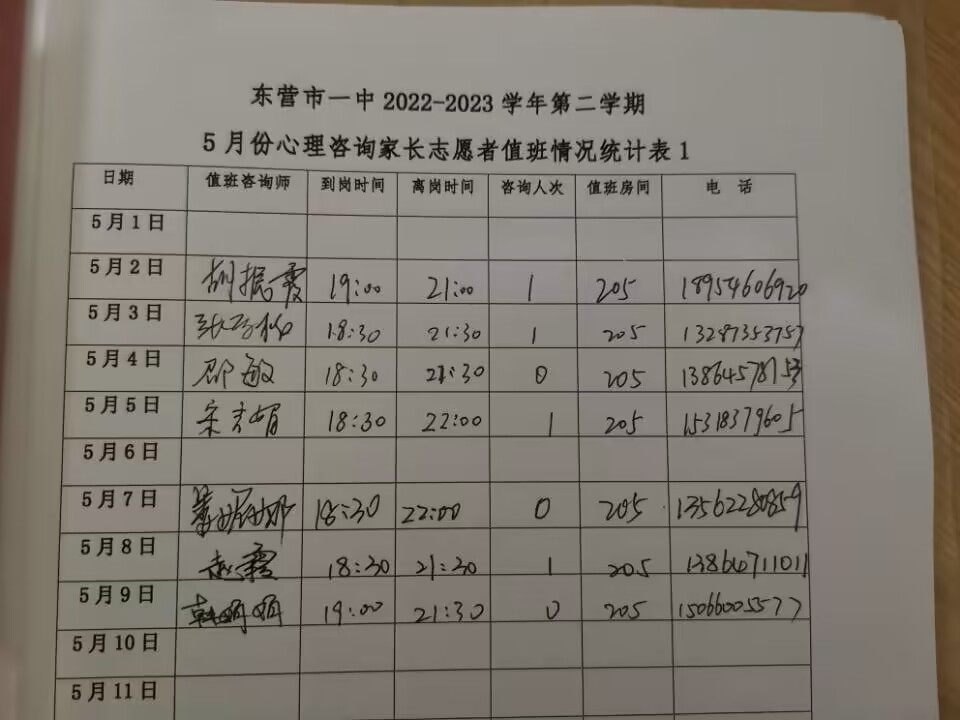 东营市一中 2022-2023 学年第二学期
5月份心理咨询家长志愿者值班情况统计表1
日期 值班咨询师 到岗时间 离岗时间 咨询人次 值班房间 电 话
5月1日
5月2日 胡振霞 19:00 21:00 1 205 18954606920
5月3日 18:30 21:30 1 205 13287353757
5月4日 邵敏 18:30 21:30 0 205 13864578153
5月5日 18:30 22:00 1 205 15318379605
5月6日
5月7日 18:30 22:00 0 205 13562280859
5月8日 赵霞 18:30 21:30 1 205 13864711011
5月9日 韩娟娟 19:00 21:30 0 205 15066005577
5月10日
5月11日